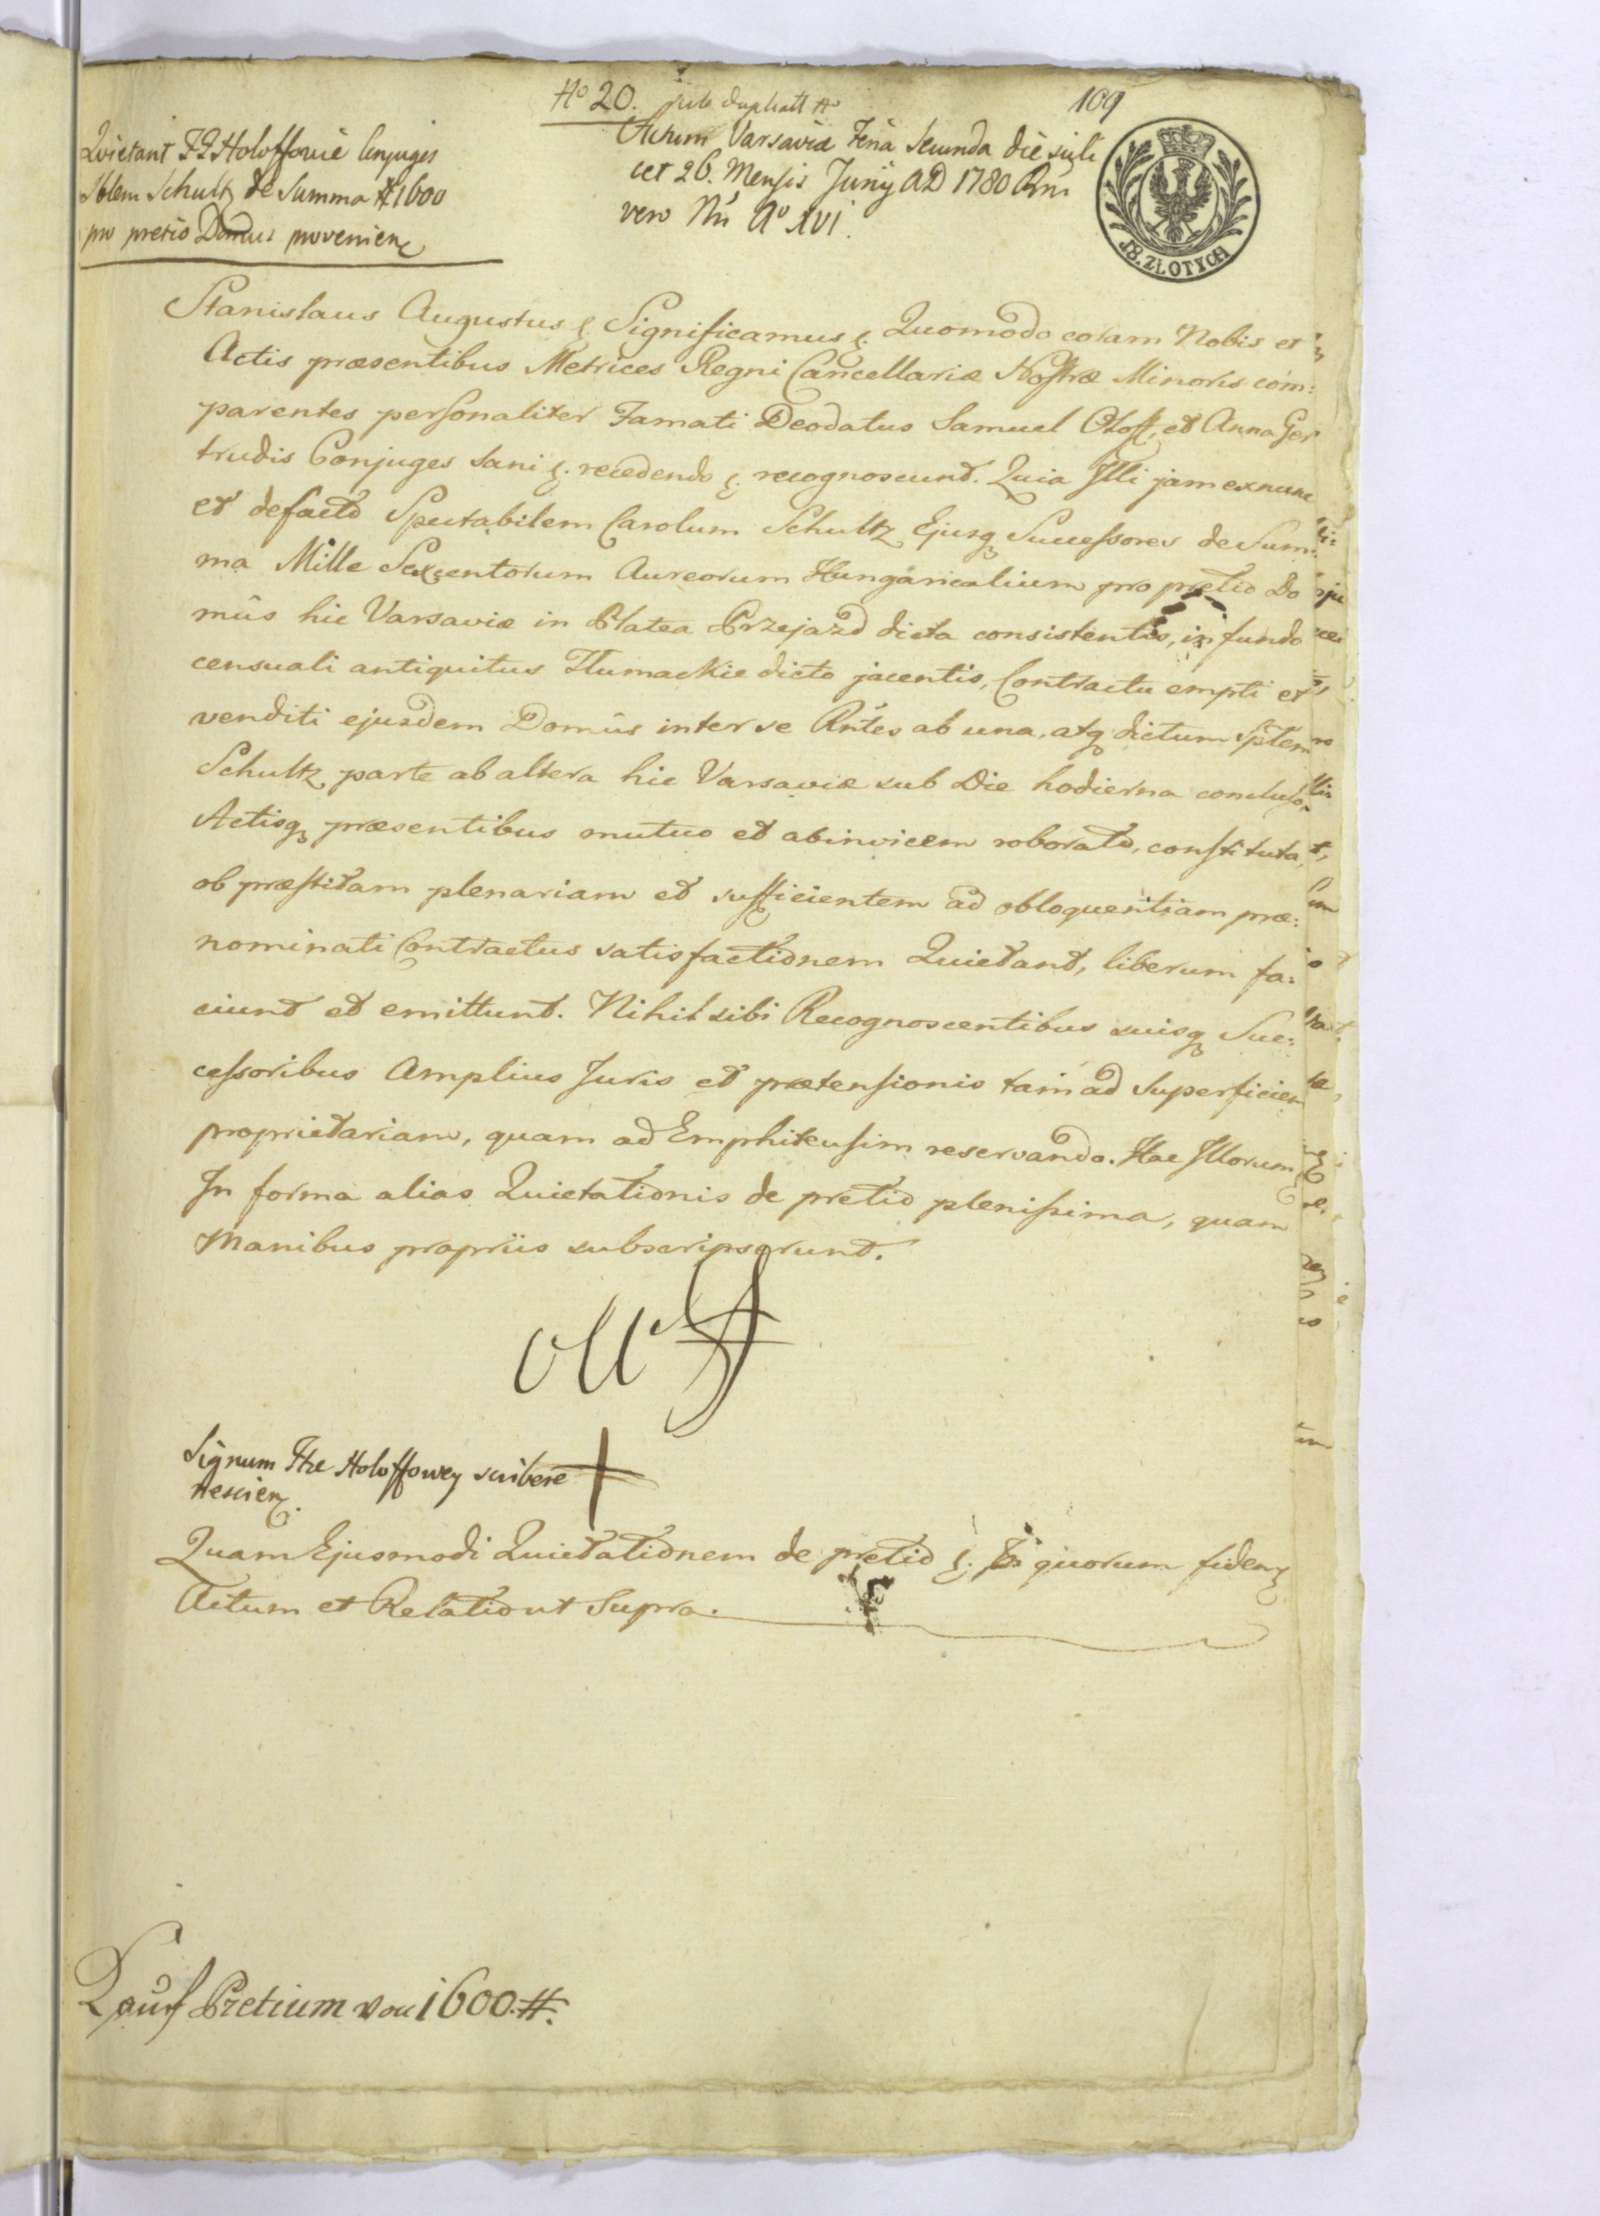 No 20.
109
Quietant FF Holoffowie Conjuges
Sblem Schultz de Summa # 1600
pro pretio Domus provenien
Actum Varsaviæ Feria Secunda die scili
cet 26. Mensis Junij AD 1780 Rni
vero Nri Ao XVI.
18. ZŁOTYCH
Stanislaus Augustus &. Significamus &. Quomodo coram Nobis et
Actis præsentibus Metrices Regni Cancellariæ Nostræ Minoris com:
parentes personaliter Famati Deodatus Samuel Oloff, et Anna Ger
trudis Conjuges sani &. recedendo &. recognoscunt. Quia Illi jam exnunc
et defacto Spectabilem Carolum Schultz Ejusq Successores de Sum:
ma Mille Sexcentorum Aureorum Hungaricalium pro pretio Do
mûs hic Varsaviæ in Platea Przejazd dicta consistentis, in fundo
censuali antiquitus Tłumackie dicto jacentis, Contractu empti et
venditi ejusdem Domûs inter se Rñtes ab una, atq dictum Sptem
Schultz parte ab altera hic Varsaviæ sub Die hodierna concluso,
Actisq præsentibus mutuo et abinvicem roborato, constituta,
ob præstitam plenariam et sufficientem ad obloquentiam præ:
nominati Contractus satisfactionem Quietant, liberum fa:
ciunt et emittunt. Nihil sibi Recognoscentibus suisq Suc:
cessoribus Amplius Juris et prætensionis tam ad Superficiem
proprietariam, quam ad Emphiteusim reservando. Hac Illorum
In forma alias Quietationis de pretio plenissima, quam
Manibus propriis subscripserunt.
Signum Ftæ Holoffowey scribere +
nescien.
Quam Ejusmodi Quietationem de pretio &. In quorum fidem
Actum et Relatio ut Supra.
Kauf Pretium von 1600 #.